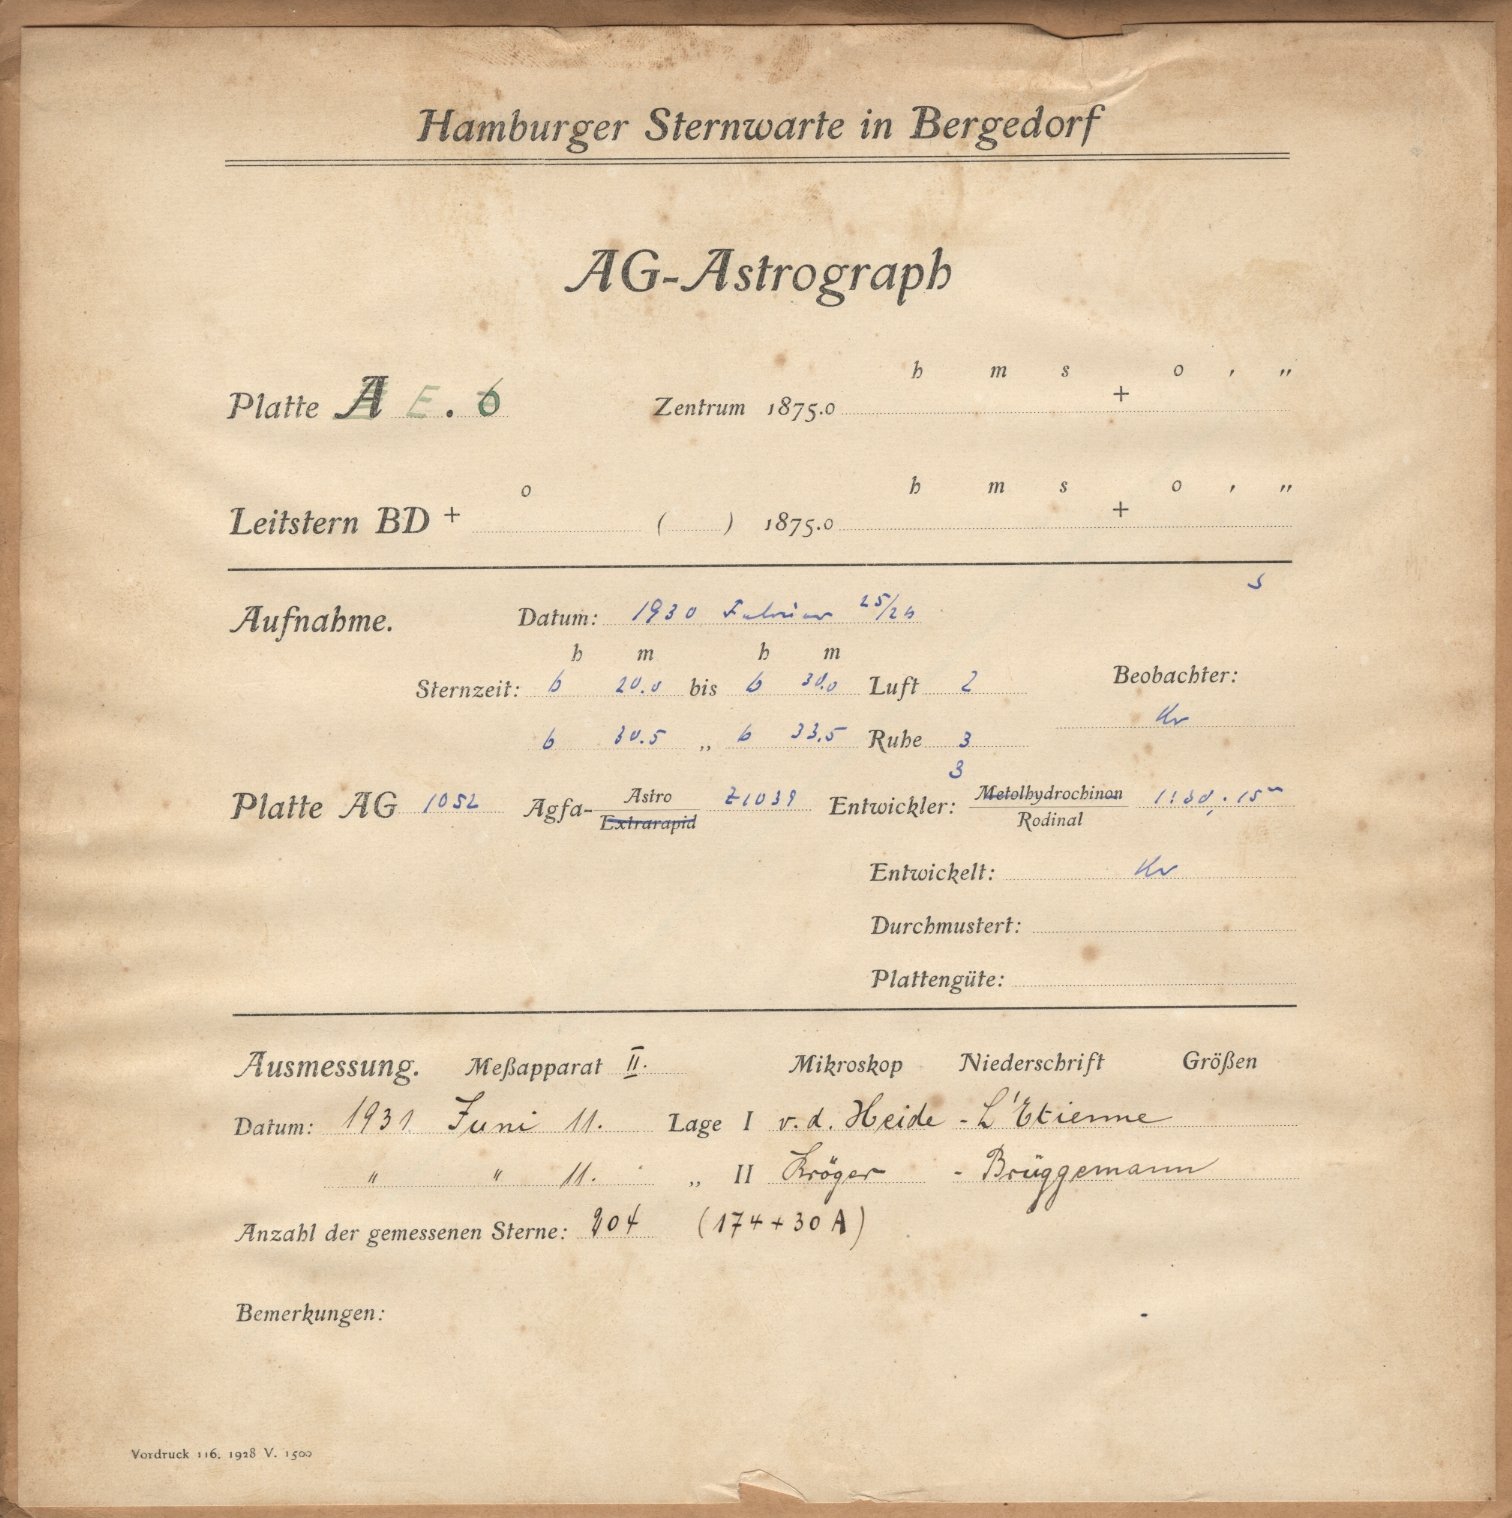 Hamburger Sternwarte in Bergedorf
AG-Astrograph
h m s o , „
Platte A E . 6 Zentrum 1875.0 +
o h m s o , „
Leitstern BD + ( ) 1875.0 +
s
Aufnahme. Datum: 1930 Februar 25/26
h m h m
Sternzeit: 6 20.0 bis 6 30.0 Luft 2 Beobachter:
Kr
6 30.5 „ 6 33.5 Ruhe 3
3
Platte AG 1052 Agfa- Astro Z1039 Entwickler: Metolhydrochinon 1:30, 15m
Extrarapid Rodinal
Entwickelt: Kr
Durchmustert:
Plattengüte:
Ausmessung. Meßapparat II. Mikroskop Niederschrift Größen
Datum: 1931 Juni 11. Lage I v. d. Heide - L'Etienne
" " 11. „ II Kröger - Brüggemann
Anzahl der gemessenen Sterne: 204 (174 + 30 A)
Bemerkungen:
Vordruck 116. 1928 V. 1500